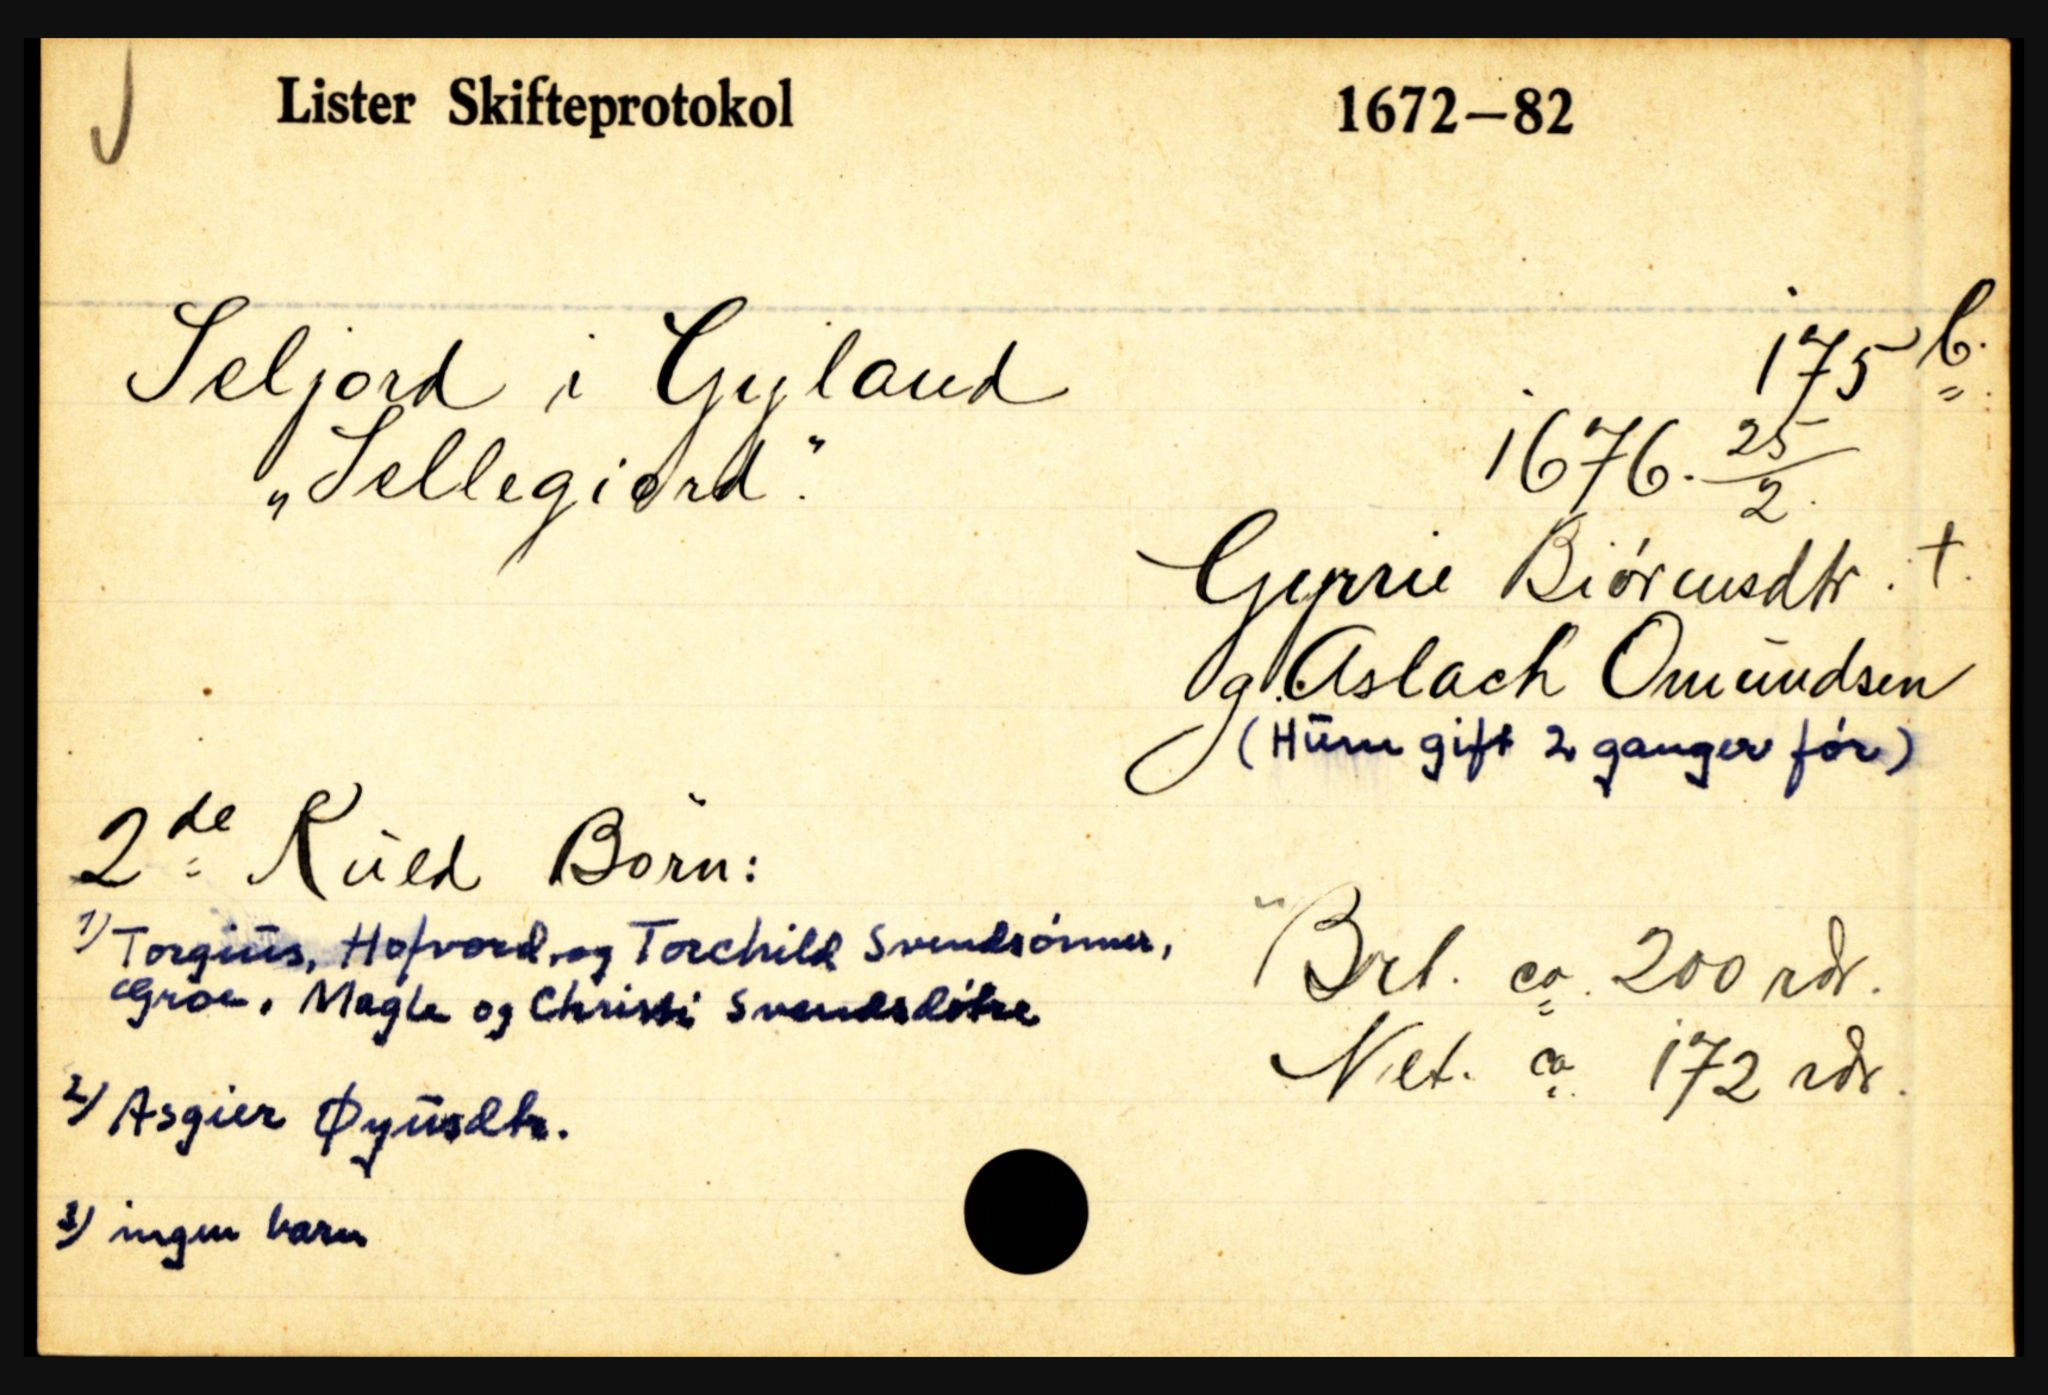 Lister Skifteprotokol 1672–82
Seljord i Gyland
„Sellegiord".
175 b.
1676. 25/2.
Gyrrie Biórensdtr. †.
g. Aslach Omūndsen
(Hūn gift 2 ganger fór)
2de Kūld Börn:
1) Torgiūs, Hofvord, og Torchild Svendsónner,
Groe, Magle og Christi Svendsdótre
2) Asgier Øyūsdtr.
3) ingen barn
Brt. ca. 200 rdr.
Net. ca. 172 rdr.